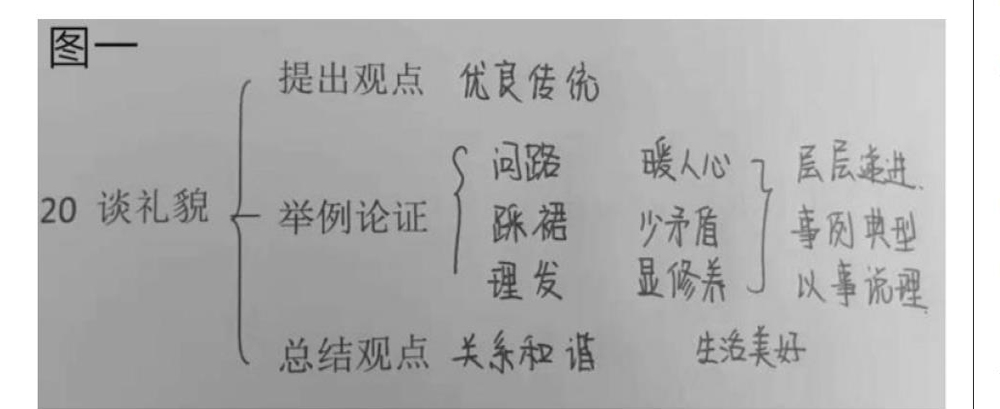 图一
提出观点 优良传统
问路 暖人心 层层递进.
20 谈礼貌 举例论证 踩裙 少矛盾 事例典型
理发 显修养 以事说理.
总结观点 关系和谐 生活美好